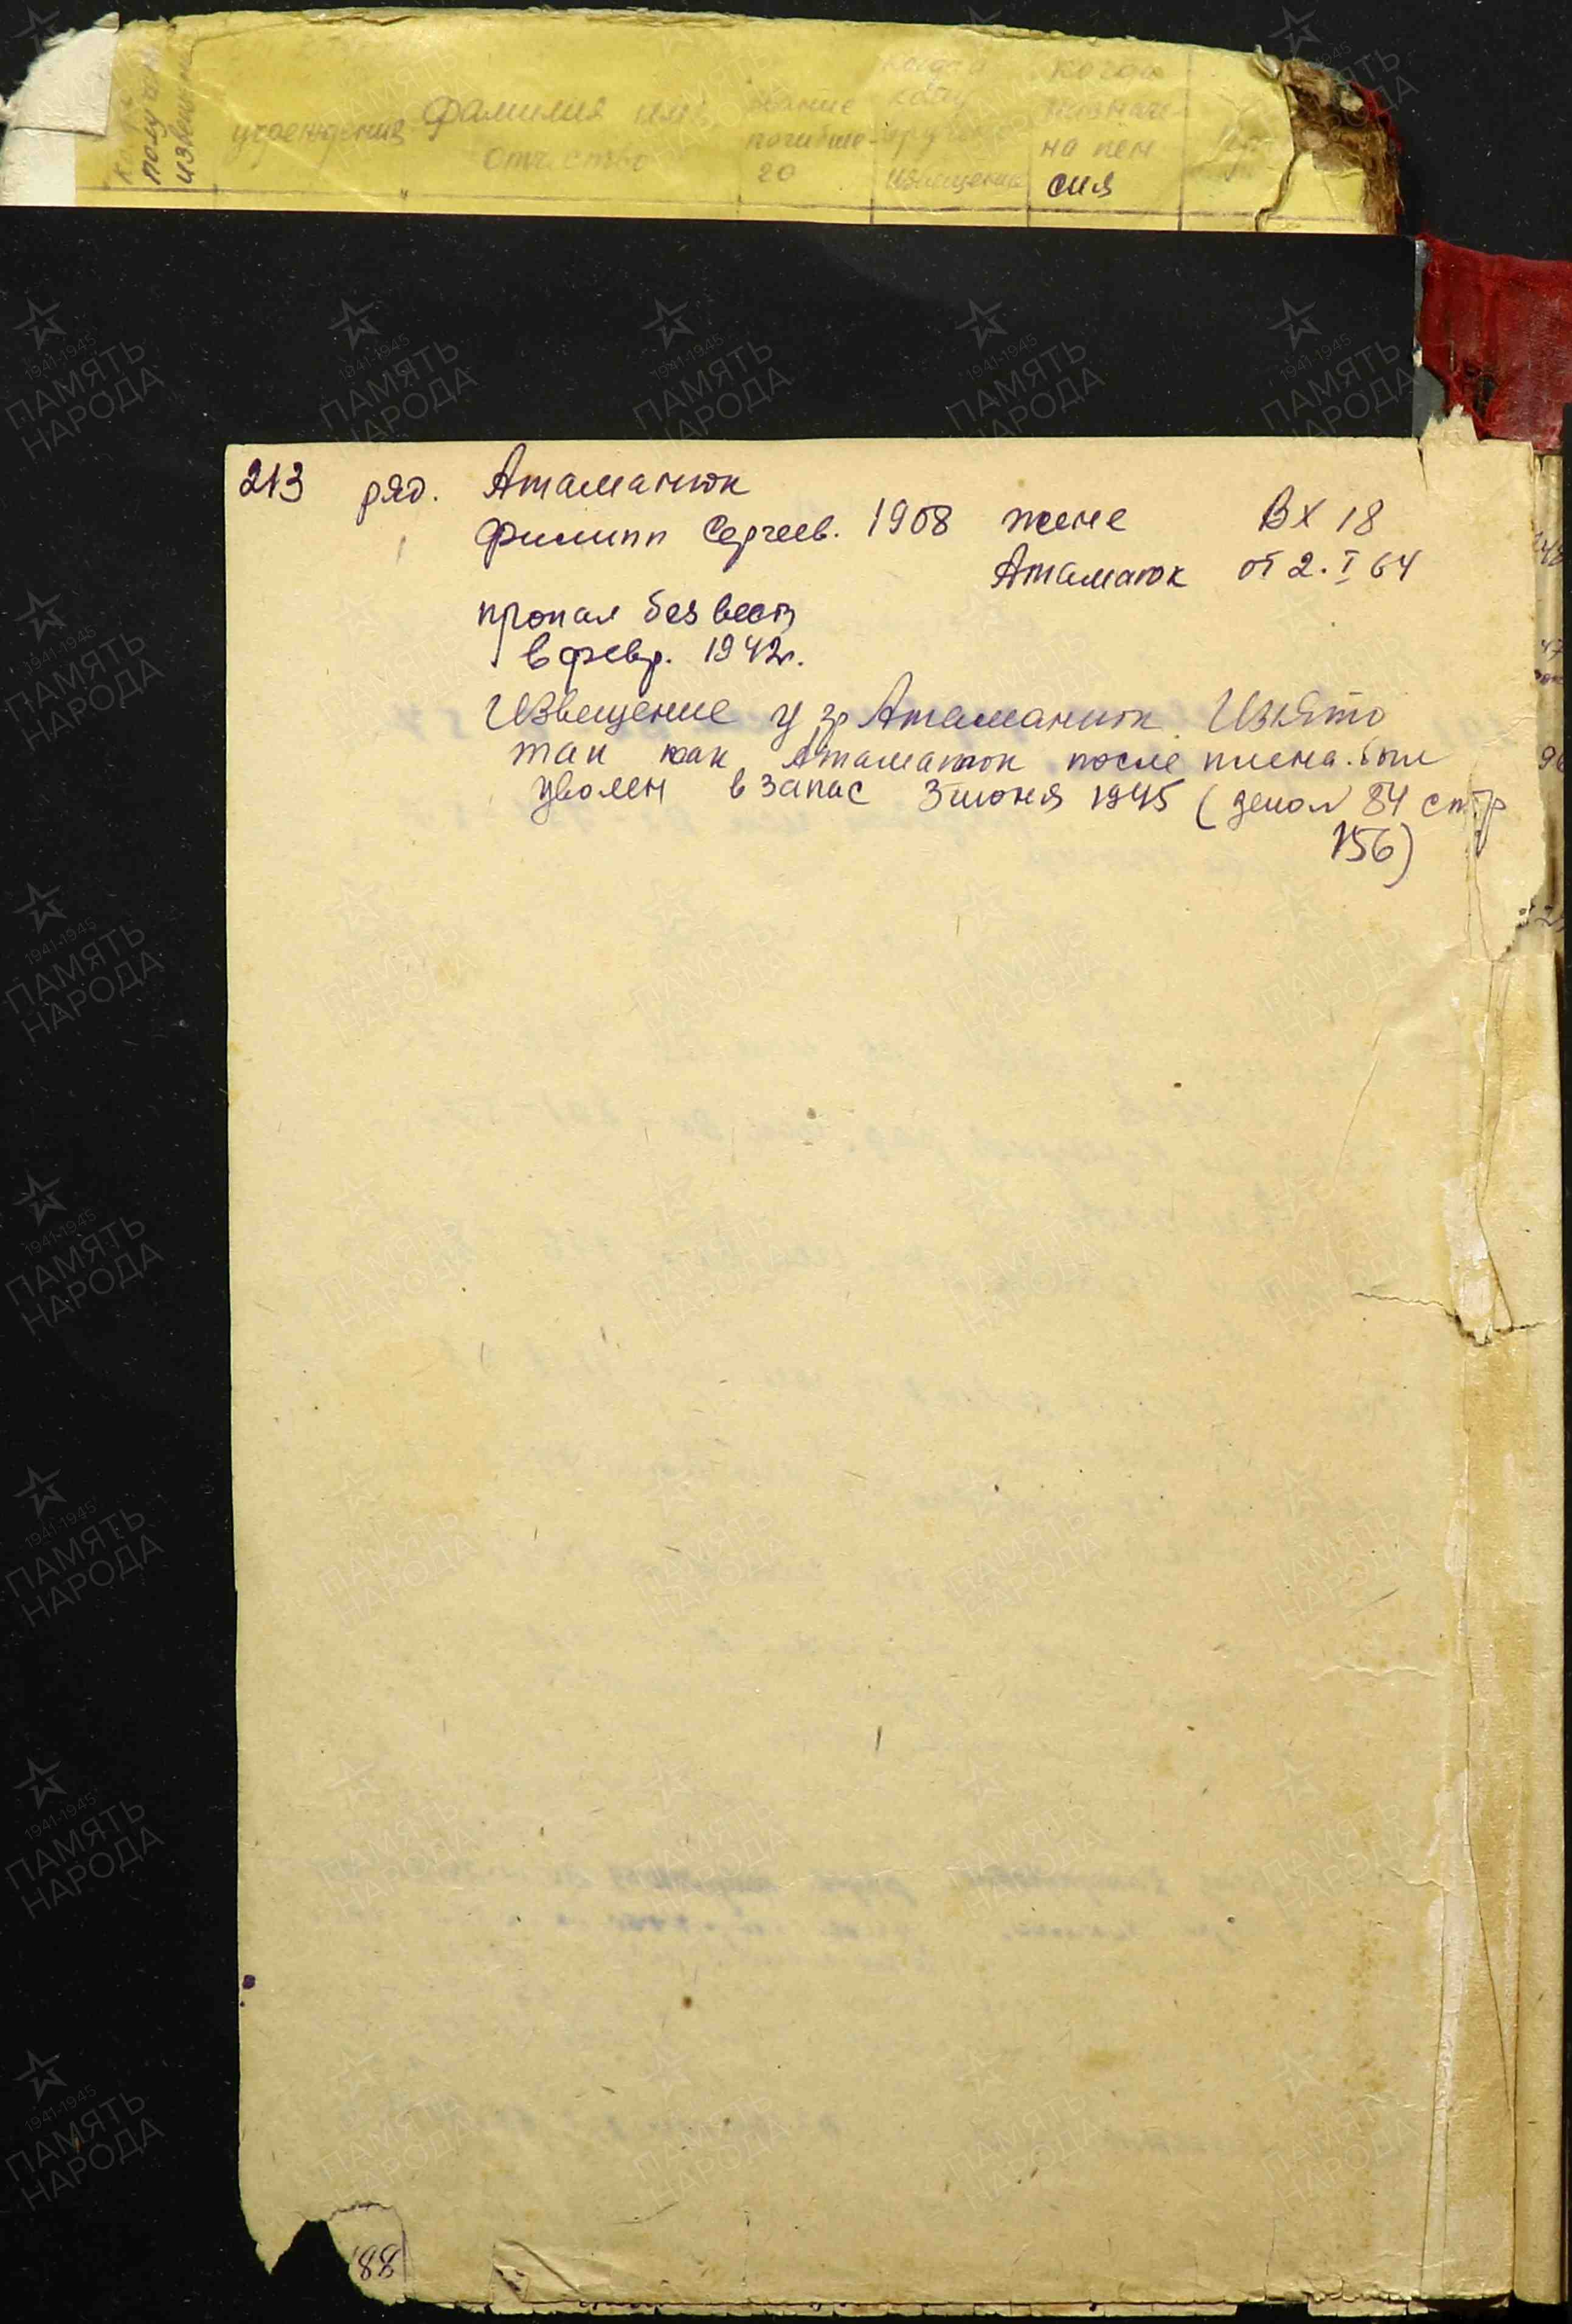 получен
извещение
учреждения
Фамилия имя
отчество
звание
погибше-
го
когда
кому
вручено
извещение
когда
назначе-
на пен
сия
213 ряд. Атаманюк
Филипп Сергеев. 1908 жене ВХ 18
Атаманюк от 2. I 64
пропал без вести
в февр. 1942г.
Извещение у гр Атаманюк. Изъято
так как Атаманюк после плена был
уволен в запас 3 июня 1945 (демол 84 стр
156)
88